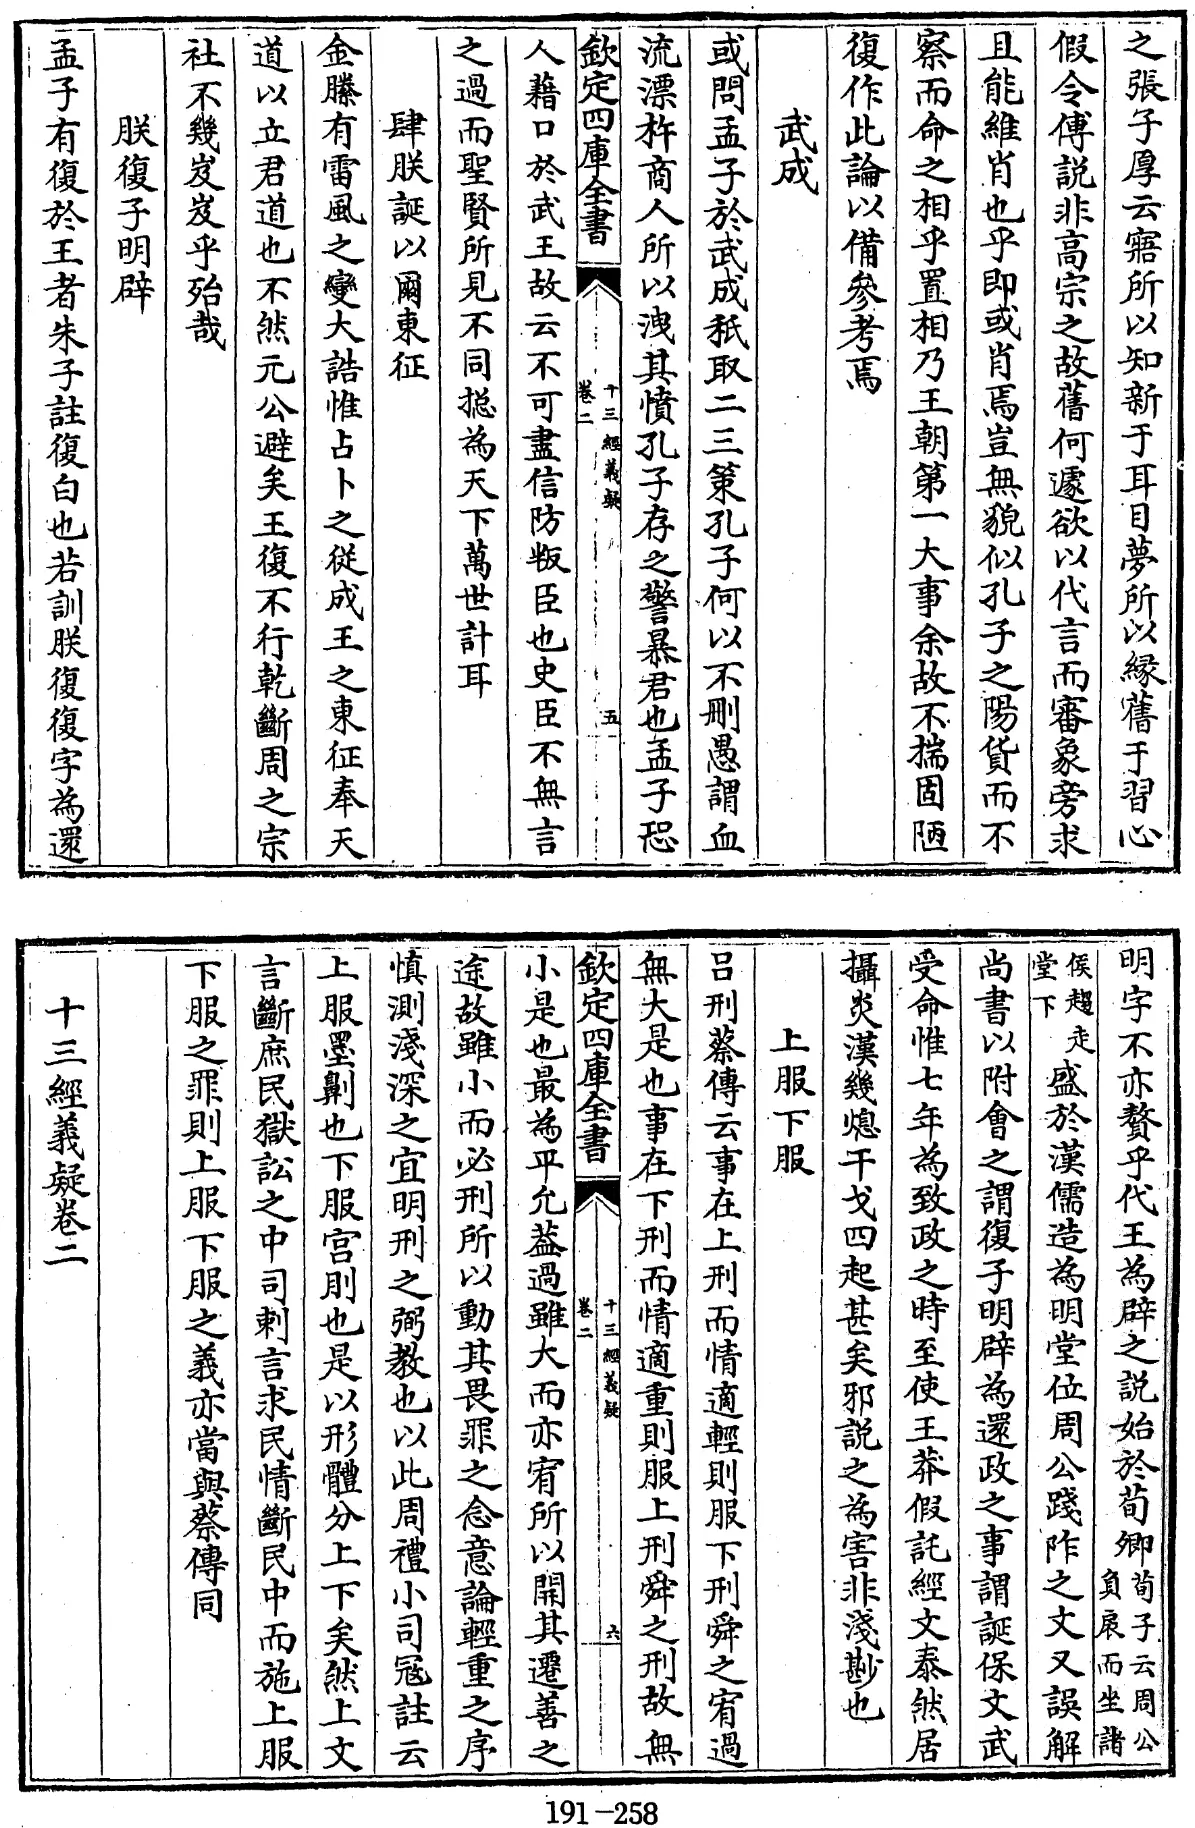 之張子厚云寤所以知新于耳目夢所以縁舊于習心
假令傅説非高宗之故舊何遽欲以代言而審象旁求
且能維肖也乎即或肖焉豈無貌似孔子之陽貨而不
察而命之相乎置相乃王朝第一大事余故不揣固陋
復作此論以備參考焉
武成
或問孟子於武成秪取二三策孔子何以不刪愚謂血
流漂杵商人所以洩其憤孔子存之警暴君也孟子恐
欽定四庫全書
十三經義疑
卷二
五
人藉口於武王故云不可盡信防叛臣也史臣不無言
之過而聖賢所見不同揔為天下萬世計耳
肆朕誕以爾東征
金縢有雷風之變大誥惟占卜之從成王之東征奉天
道以立君道也不然元公避矣王復不行乾斷周之宗
社不幾岌岌乎殆哉
朕復子明辟
孟子有復於王者朱子註復白也若訓朕復復字為還
明字不亦贅乎代王為辟之説始於荀卿荀子云周公負扆而坐諸
侯趨走堂下盛於漢儒造為明堂位周公踐阼之文又誤解
尚書以附會之謂復子明辟為還政之事謂誕保文武
受命惟七年為致政之時至使王莽假託經文泰然居
攝炎漢幾熄干戈四起甚矣邪説之為害非淺尠也
上服下服
吕刑蔡傳云事在上刑而情適輕則服下刑舜之宥過
無大是也事在下刑而情適重則服上刑舜之刑故無
欽定四庫全書
十三經義疑
卷二
六
小是也最為平允葢過雖大而亦宥所以開其遷善之
途故雖小而必刑所以動其畏罪之念意論輕重之序
慎測淺深之宜明刑之弼教也以此周禮小司寇註云
上服墨劓也下服宫刖也是以形體分上下矣然上文
言斷庶民獄訟之中司刺言求民情斷民中而施上服
下服之罪則上服下服之義亦當與蔡傳同
十三經義疑卷二
191-258